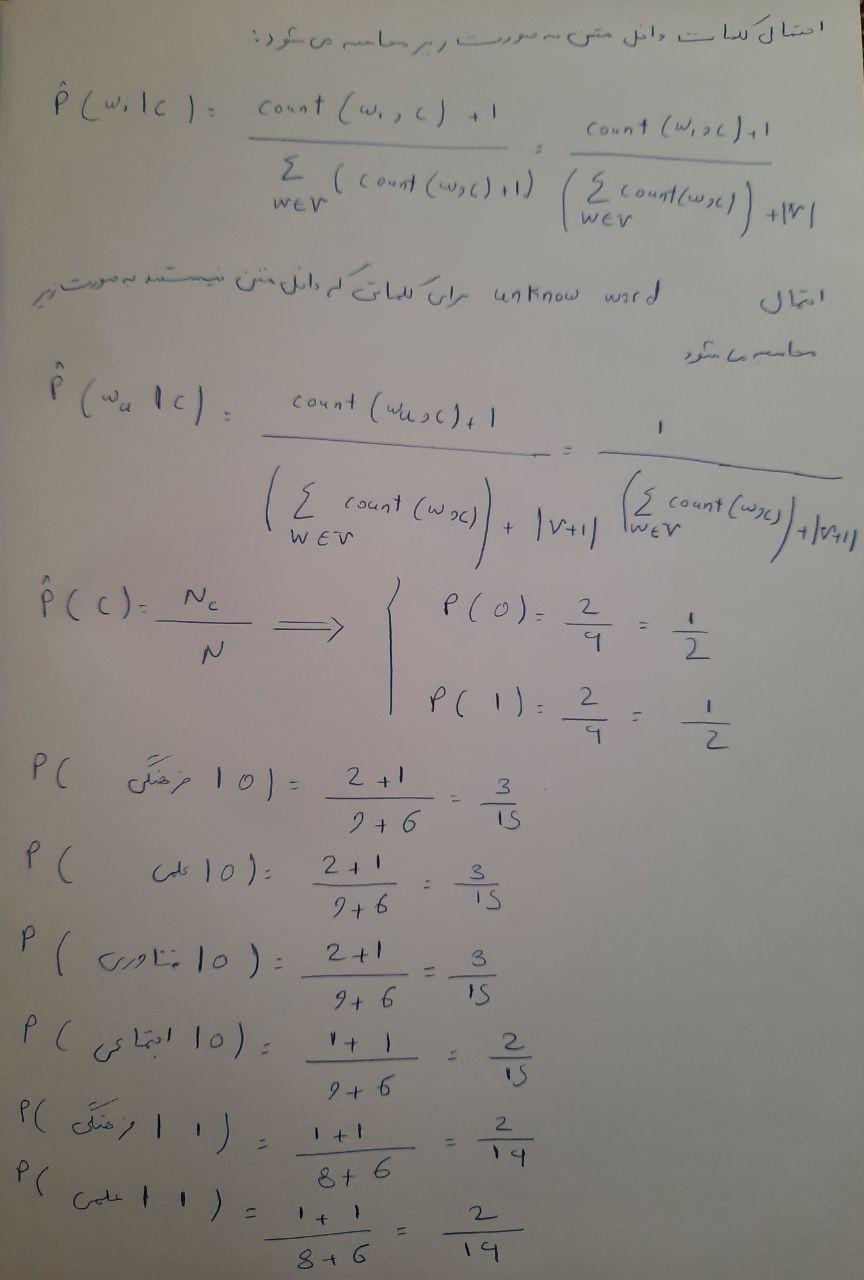 احتمال کلمات داخل متن به صورت زیر محاسبه می شود:
P̂(wᵢ|c) = (count(wᵢ,c)+1) / (Σ_{w∈V} (count(w,c)+1)) = (count(wᵢ,c)+1) / ((Σ_{w∈V} count(w,c)) + |V|)
احتمال unknow word برای کلماتی که داخل متن نیستند به صورت زیر
محاسبه می شود
P̂(w_u|c) = (count(w_u,c)+1) / ((Σ_{w∈V} count(w,c)) + |V+1|) = 1 / ((Σ_{w∈V} count(w,c)) + |V+1|)
P̂(c) = N_c / N ⟹ { P(0) = 2/4 = 1/2
P(1) = 2/4 = 1/2
P(فرهنگی | 0) = (2+1)/(9+6) = 3/15
P(علمی | 0) = (2+1)/(9+6) = 3/15
P(فناوری | 0) = (2+1)/(9+6) = 3/15
P(اجتماعی | 0) = (1+1)/(9+6) = 2/15
P(فرهنگی | 1) = (1+1)/(8+6) = 2/14
P(علمی | 1) = (1+1)/(8+6) = 2/14